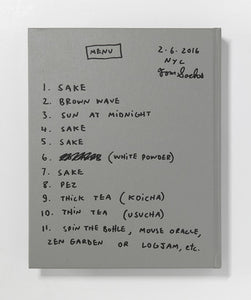 MENU
2.6.2016
NYC
Tom Sachs
1. SAKE
2. BROWN WAVE
3. SUN AT MIDNIGHT
4. SAKE
5. SAKE
6. (WHITE POWDER)
7. SAKE
8. PEZ
9. THICK TEA (KOICHA)
10. THIN TEA (USUCHA)
11. SPIN THE BOTTLE, MOUSE ORACLE,
ZEN GARDEN OR LOGJAM, etc.